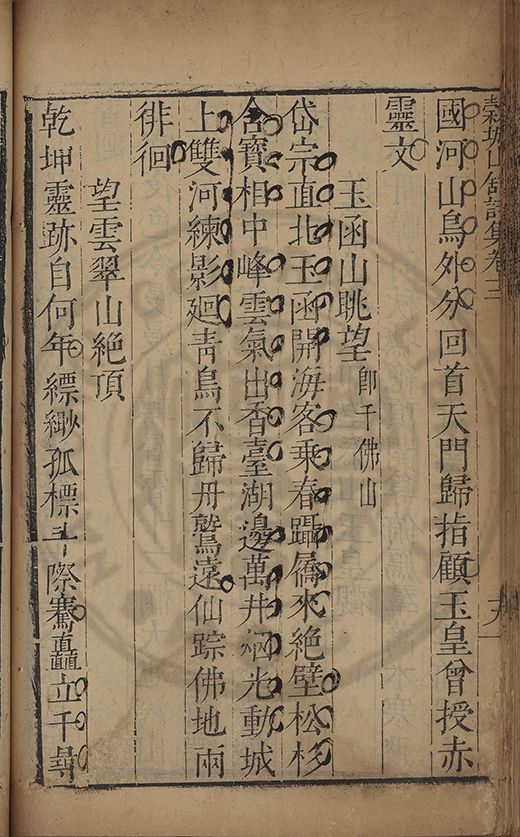 穀城山館詩集卷三
國河山鳥外分回首天門歸指顧玉皇曾授赤
靈文
玉函山眺望 即千佛山
岱宗直北玉函開海客乘春躡屩來絕壁松杉
含寶相中峰雲氣出香臺湖邊萬井烟光動城
上雙河練影廻青鳥不歸丹鷲遠仙踪佛地兩
徘徊
望雲翠山絕頂
乾坤靈跡自何年縹緲孤標斗際騫矗立千尋